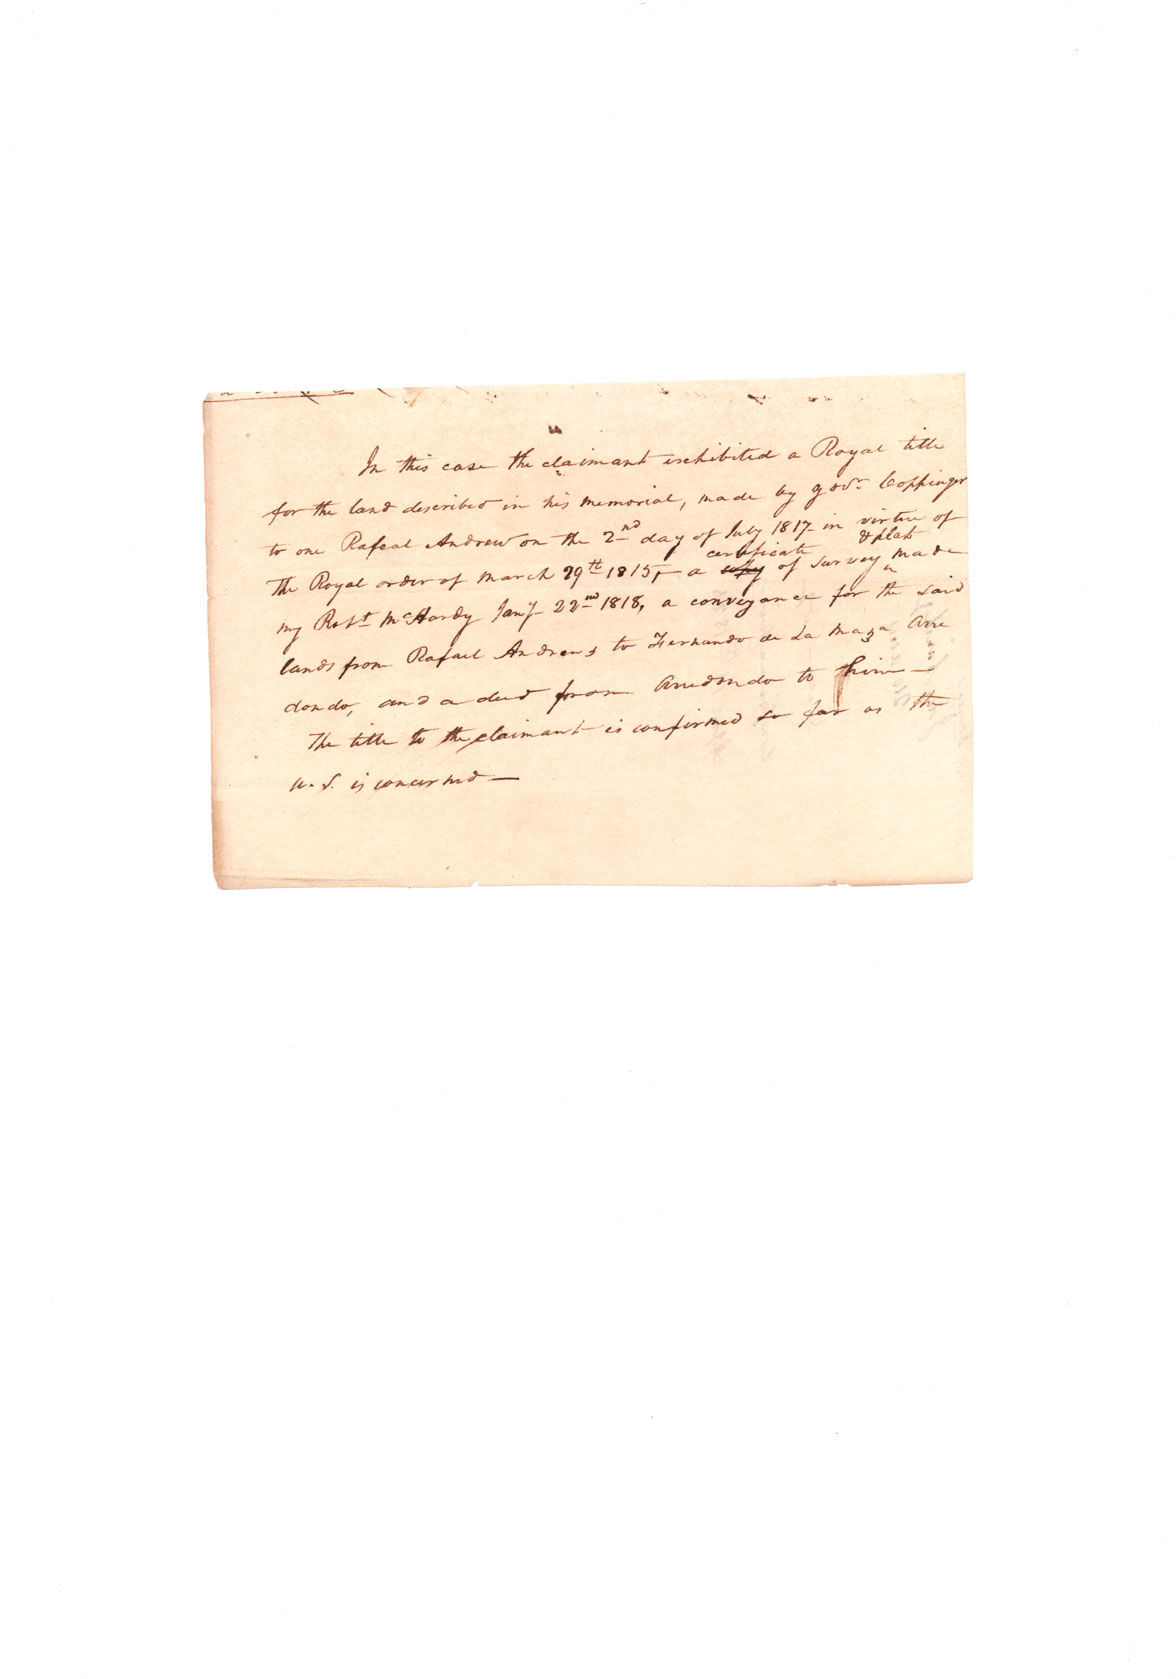 In this case the claimant exhibited a Royal title
for the land described in his memorial, made by govr. Coppinger
to one Rafeal Andrew on the 2nd day of July 1817 in virtue of
certificate & plat
the Royal order of March 29th 1815, - a copy of survey made
my Robt McHardy Jany 22nd 1818, a conveyance for the said
lands from Rafael Andrews to Fernando de La Maza Arre
dondo, and a deed from Arredondo to him —
The title to the claimant is confirmed so far as the
U. S. is concerned —